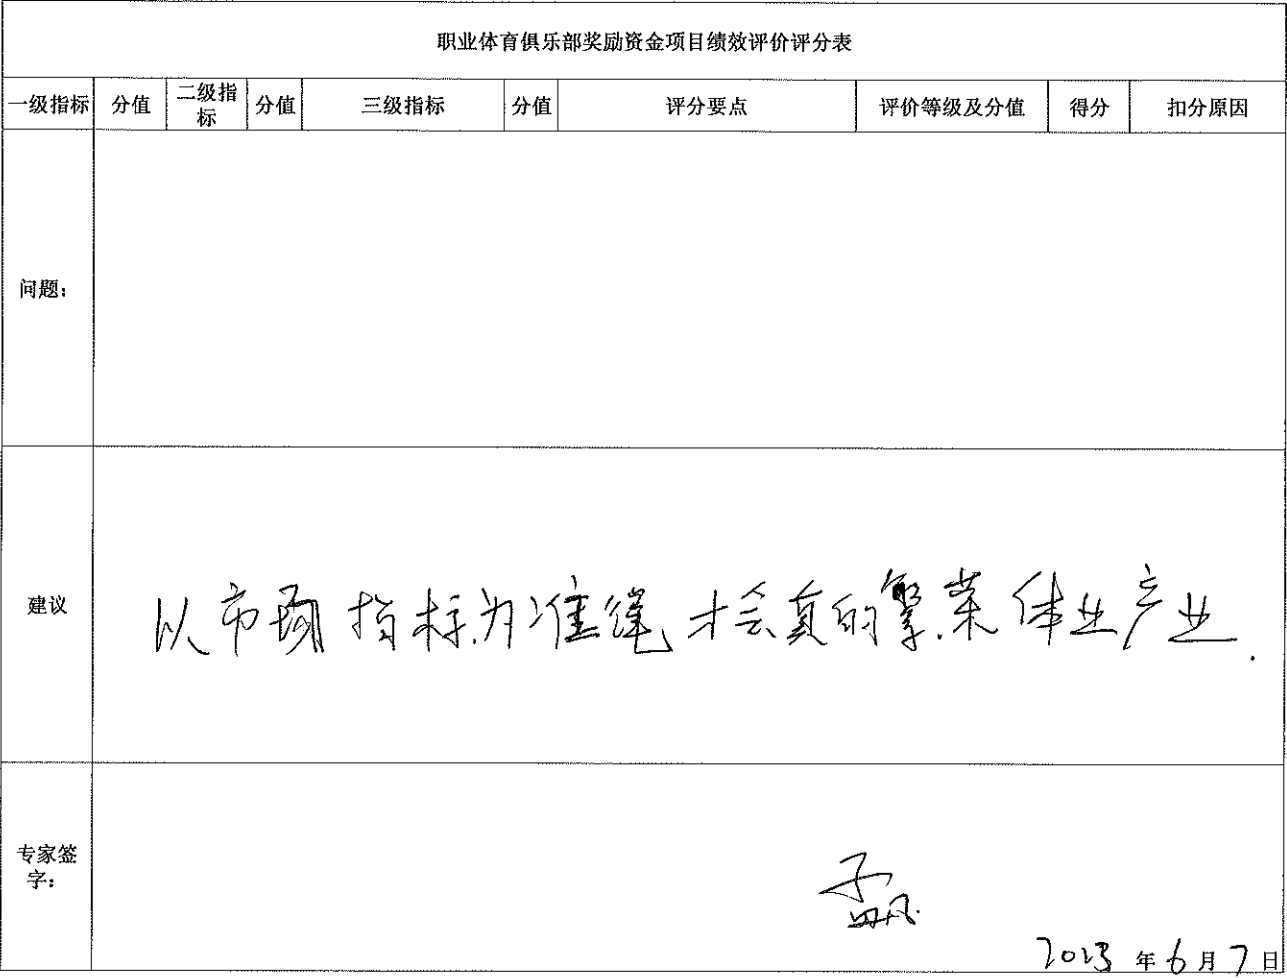 职业体育俱乐部奖励资金项目绩效评价评分表
一级指标 分值 二级指标 分值 三级指标 分值 评分要点 评价等级及分值 得分 扣分原因
问题：
建议
以市场指标为准绳,才会真的繁荣体业产业.
专家签
字：
2023 年 6 月 7 日